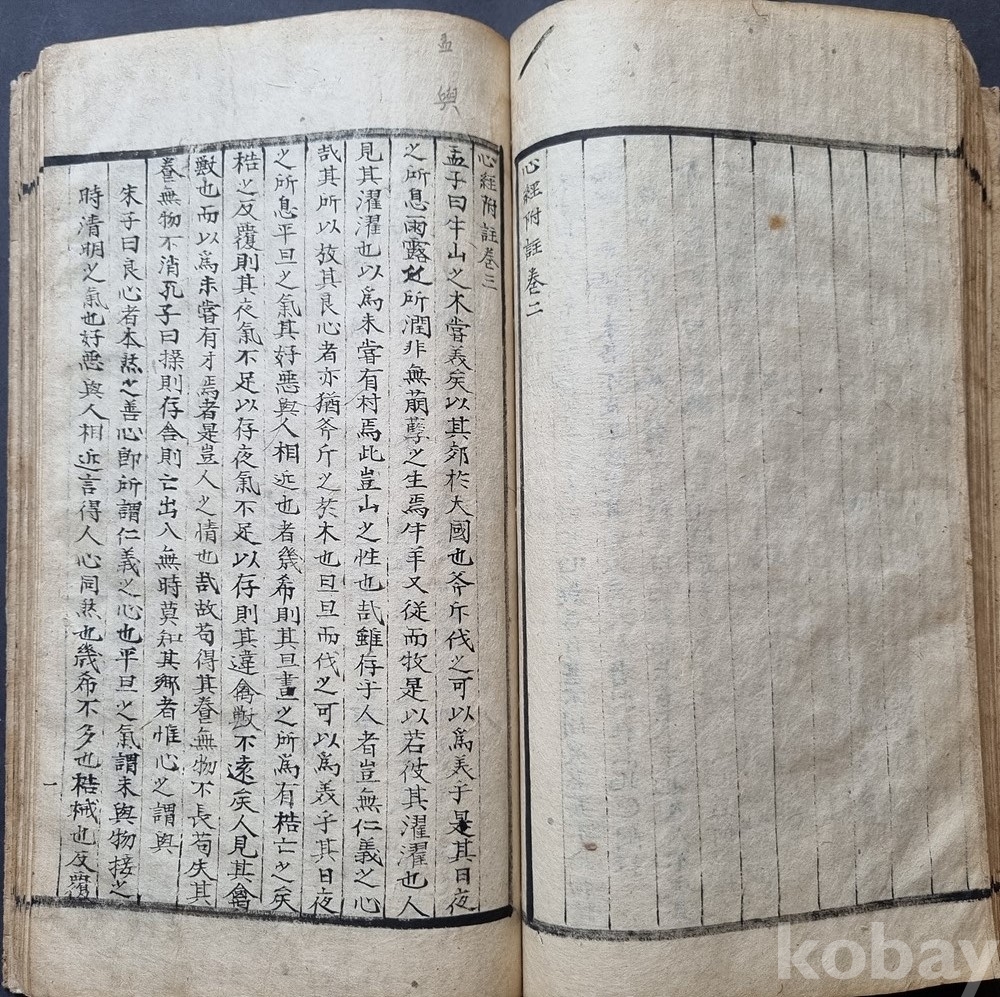 心經附註卷二
孟
輿
心經附註卷三
孟子曰牛山之木嘗美矣以其郊於大國也斧斤伐之可以爲美乎是其日夜
之所息雨露之所潤非無萠蘖之生焉牛羊又從而牧是以若彼其濯濯也人
見其濯濯也以爲未嘗有材焉此豈山之性也哉雖存乎人者豈無仁義之心
哉其所以放其良心者亦猶斧斤之於木也旦旦而伐之可以爲美乎其日夜
之所息平旦之氣其好惡與人相近也者幾希則其旦晝之所爲有梏亡之矣
梏之反覆則其夜氣不足以存夜氣不足以存則其違禽獸不遠矣人見其禽
獸也而以爲未嘗有才焉者是豈人之情也哉故苟得其養無物不長苟失其
養無物不消孔子曰操則存舍則亡出入無時莫知其鄉者惟心之謂與
朱子曰良心者本然之善心卽所謂仁義之心也平旦之氣謂未與物接之
時清明之氣也好惡與人相近言得人心同然也幾希不多也梏械也反覆
一
kobay